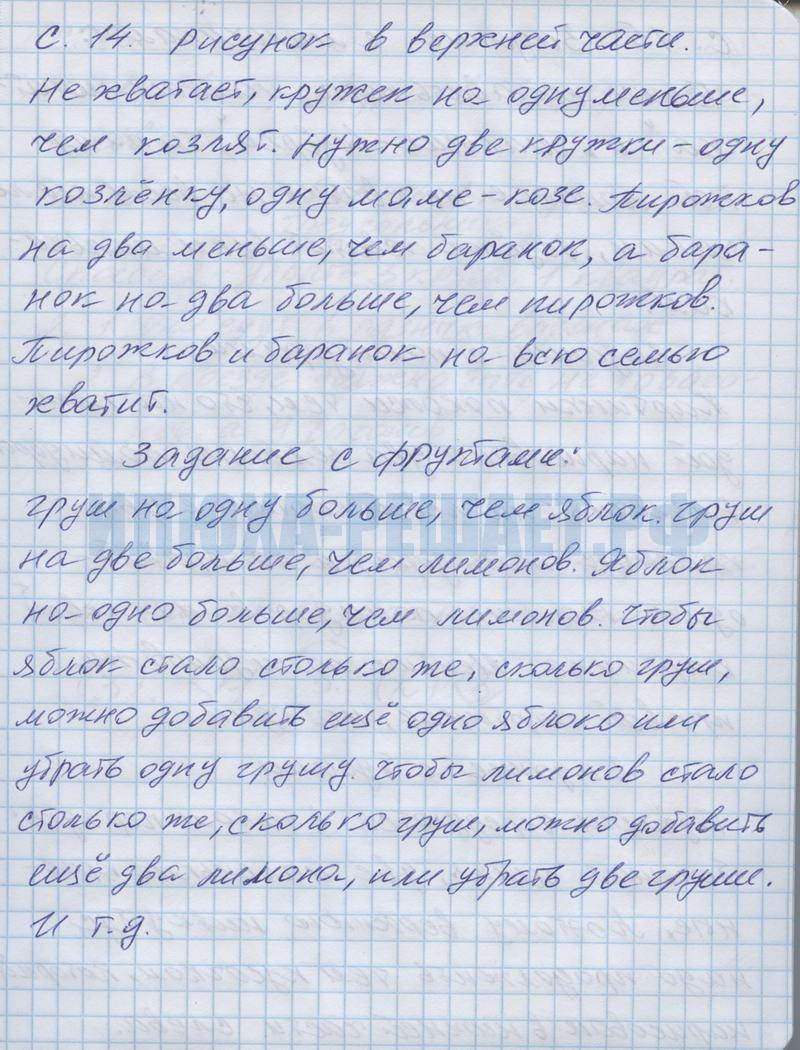 С. 14. Рисунок в верхней части.
Не хватает, кружек на одну меньше,
чем козлят. Нужно две кружки – одну
козлёнку, одну маме-козе. Пирожков
на два меньше, чем баранок, а бара-
нок на два больше, чем пирожков.
Пирожков и баранок на всю семью
хватит.
Задание с фруктами:
груш на одну больше, чем яблок. груш
на две больше, чем лимонов. Яблок
на одно больше, чем лимонов. Чтобы
яблок стало столько же, сколько груш,
можно добавить ещё одно яблоко или
убрать одну грушу. Чтобы лимонов стало
столько же, сколько груш, можно добавить
ещё два лимона, или убрать две груши.
И т.д.
ШКОЛА-РЕШАЕТ.РФ